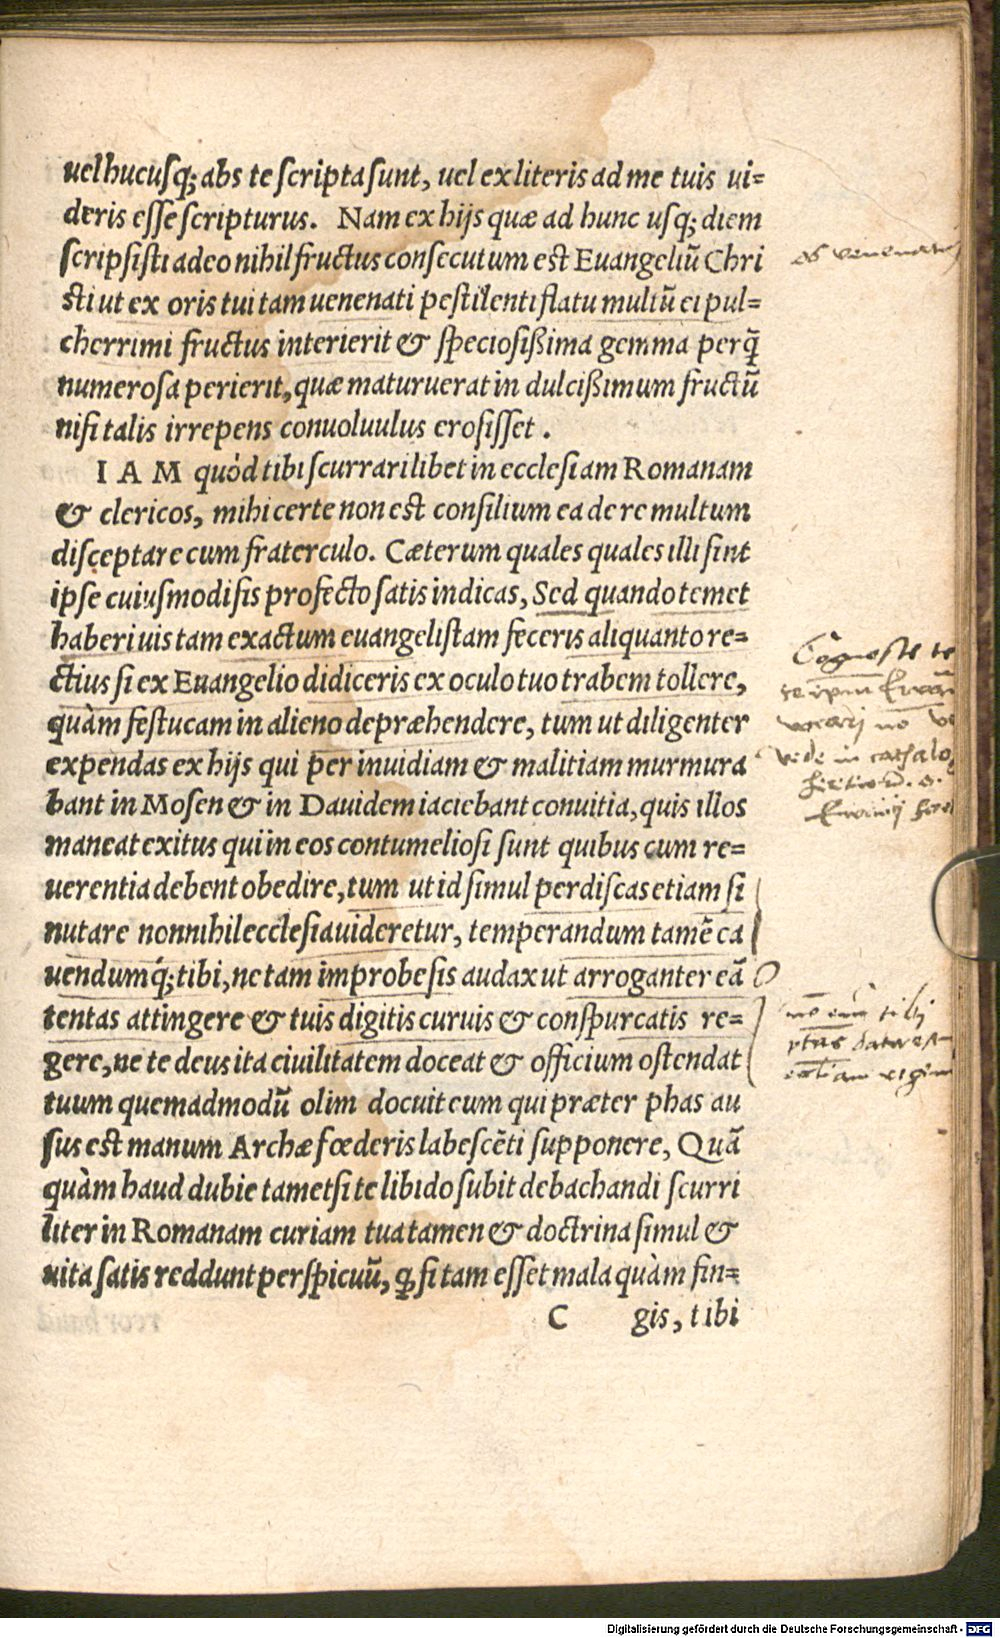 uel hucusq; abs te scripta sunt, uel ex literis ad me tuis ui=
deris esse scripturus. Nam ex hijs quæ ad hunc usq; diem
scripsisti adeo nihil fructus consecutum est Euangeliũ Chri
sti ut ex oris tui tam uenenati pestilenti flatu multũ ei pul=
cherrimi fructus interierit & speciosißima gemma perq̃
numerosa perierit, quæ maturuerat in dulcißimum fructũ
nisi talis irrepens conuoluulus erosisset.
IAM quòd tibi scurrari libet in ecclesiam Romanam
& clericos, mihi certe non est consilium ea de re multum
disceptare cum fraterculo. Cæterum quales quales illi sint
ipse cuiusmodi sis profecto satis indicas, Sed quando temet
haberi uis tam exactum euangelistam feceris aliquanto re=
ctius si ex Euangelio didiceris ex oculo tuo trabem tollere,
quàm festucam in alieno depræhendere, tum ut diligenter
expendas ex hijs qui per inuidiam & malitiam murmura
bant in Mosen & in Dauidem iaciebant conuitia, quis illos
maneat exitus qui in eos contumeliosi sunt quibus cum re=
uerentia debent obedire, tum ut id simul perdiscas etiam si
nutare nonnihil ecclesia uideretur, temperandum tamẽ ca
uendumq́; tibi, ne tam improbe sis audax ut arroganter eã
tentas attingere & tuis digitis curuis & conspurcatis re=
gere, ne te deus ita ciuilitatem doceat & officium ostendat
tuum quemadmodũ olim docuit eum qui præter phas au
sus est manum Archæ fœderis labescẽti supponere, Quã
quàm haud dubie tametsi te libido subit debachandi scurri
liter in Romanam curiam tua tamen & doctrina simul &
uita satis reddunt perspicuũ, ꝙ si tam esset mala quàm fin=
C gis, tibi
os venenatu
Cognosce te
vide in cathalo
Digitalisierung gefördert durch die Deutsche Forschungsgemeinschaft - DFG